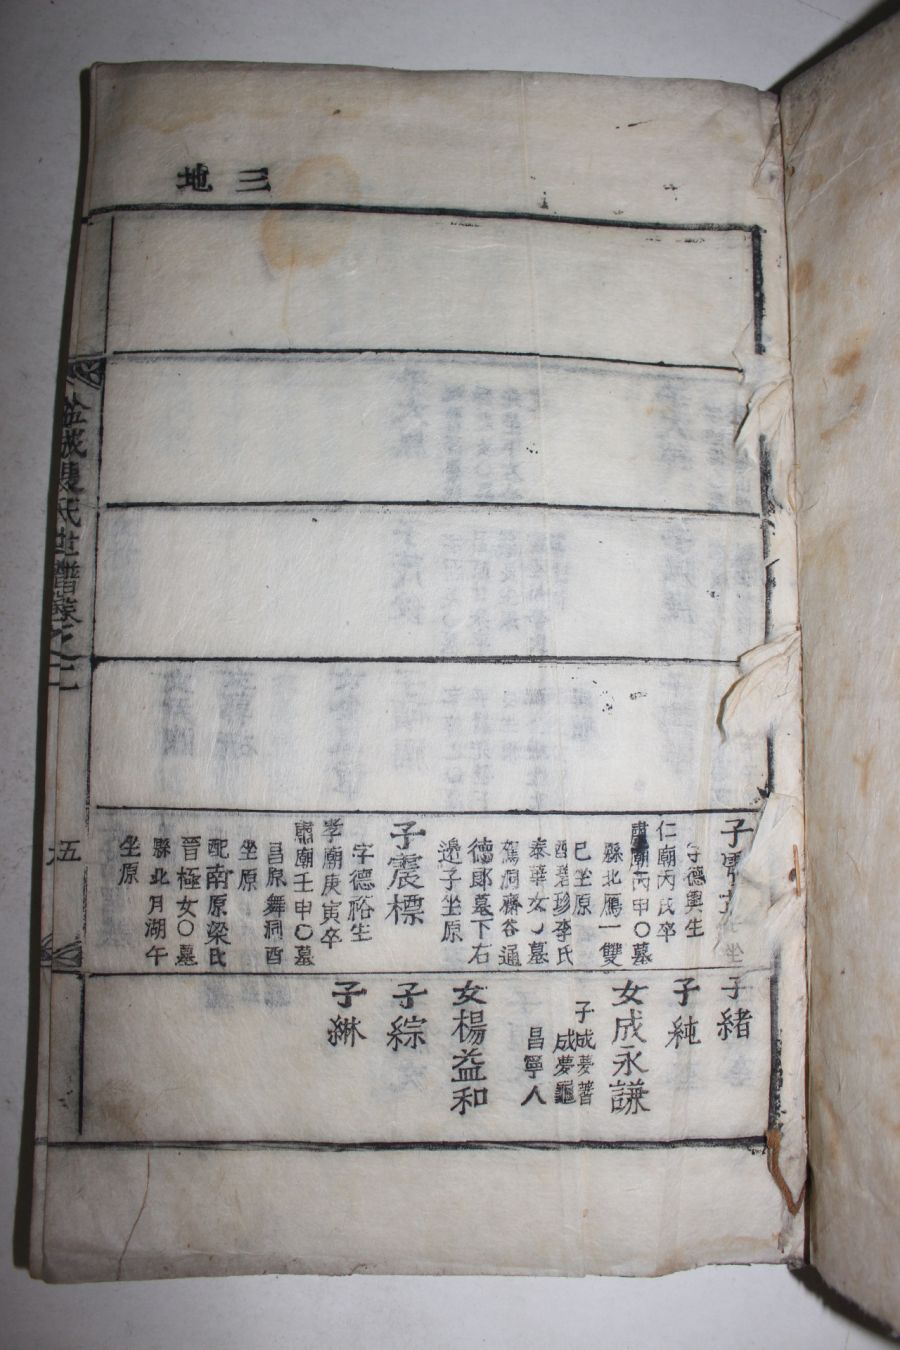 三地
子震
字德輿生
仁廟丙戌卒
肅廟丙申〇墓
縣北鴈一雙
巳坐原
配碧珍李氏
泰華女〇墓
鴛洞齋谷通
德郎墓下右
邊子坐原
子震標
字德裕生
孝廟庚寅卒
肅廟壬申〇墓
昌原舞洞酉
坐原
配南原梁氏
晉極女〇墓
縣北月湖午
坐原
子緖
子純
女成永謙
子成夢蓍
成夢龜
昌寧人
女楊益和
子綜
子綝
氏世譜卷之二
五